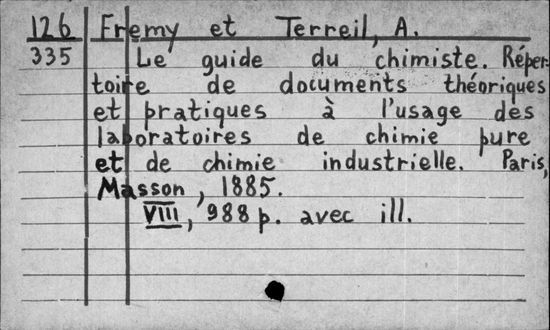 126 Fremy et Terreil, A.
335 Le guide du chimiste. Réper-
toire de documents théoriques
et pratiques à l'usage des
laboratoires de chimie pure
et de chimie industrielle. Paris,
Masson, 1885.
VIII, 988 p. avec ill.